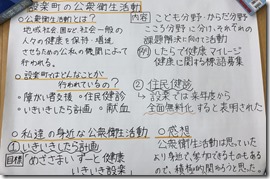 設楽町の公衆衛生活動
○公衆衛生活動とは?
地域社会、国など、社会一般の
人々の健康を保持・増進
させるための公私の機関によって
行われる。
内容 こども分野・からだ分野
こころ分野に分け、それぞれの
課題解決に向けて活動
例 したらで健康マイレージ
健康に関する標語募集
○設楽町ではどんなことが
行われているの?
・障がい者支援 ・住民健診
・いきいきしたら計画 ・献血
② 住民健診
→設楽では来年度から
全面無料化すると表明された
○私達の身近な公衆衛生活動
①いきいきしたら計画
目標 めざさまいずーと健康
いきいき設楽
○感想
公衆衛生活動は思っていた
より身近で、参加できるものもある
ので、積極的に関わろうと思った。